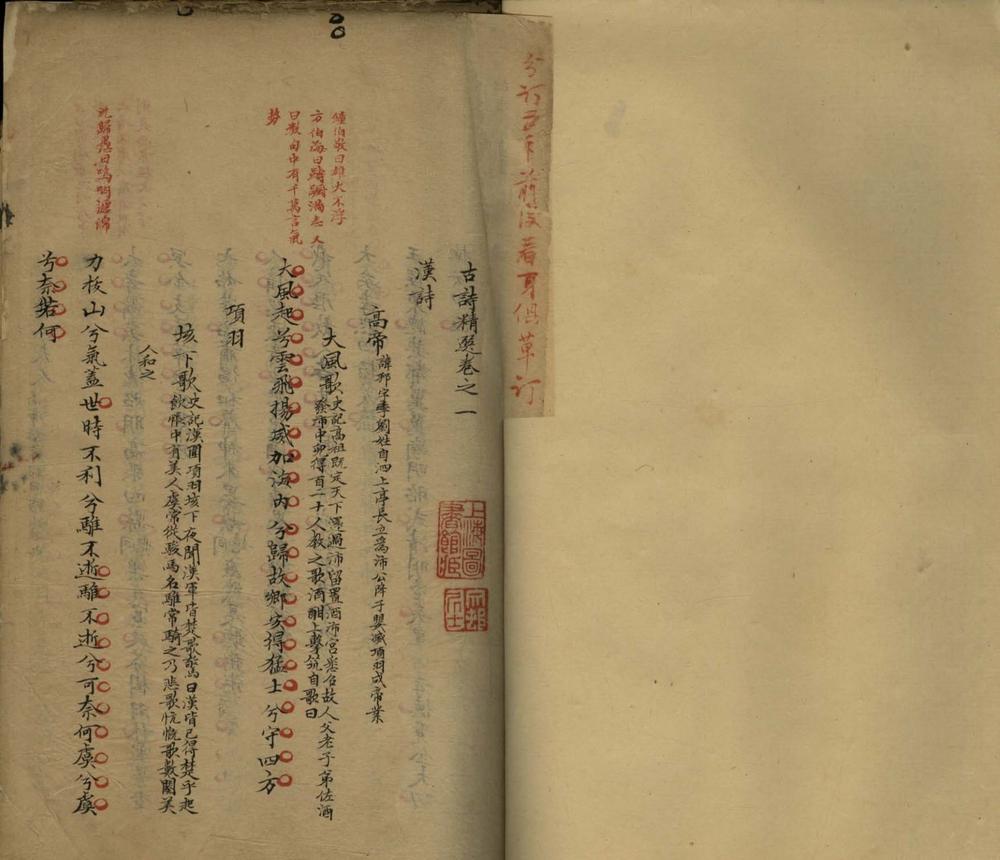 分訂五本前後着頁俱草訂
古詩精選卷之一
漢詩
高帝諱邦字季劉姓自泗上亭長立為沛公降子嬰滅項羽成帝業
大風歌史記高祖既定天下還過沛留置酒沛宮悉召故人父老子弟佐酒
發沛中兒得百二十人教之歌酒酣上擊筑自歌曰
大風起兮雲飛揚威加海內兮歸故鄉安得猛士兮守四方
項羽
垓下歌史記漢圍項羽垓下夜聞漢軍皆楚歌驚曰漢皆已得楚乎起
飲帳中有美人虞常從駿馬名騅常騎之乃悲歌忼慨歌數闋美
人和之
力拔山兮氣蓋世時不利兮騅不逝騅不逝兮可奈何虞兮虞
兮奈若何
鍾伯敬曰雄大不浮
方伯海曰躊躇滿志人
曰數句中有千萬言氣
勢
沈歸愚曰嗚咽纏綿
上海圖
書館藏